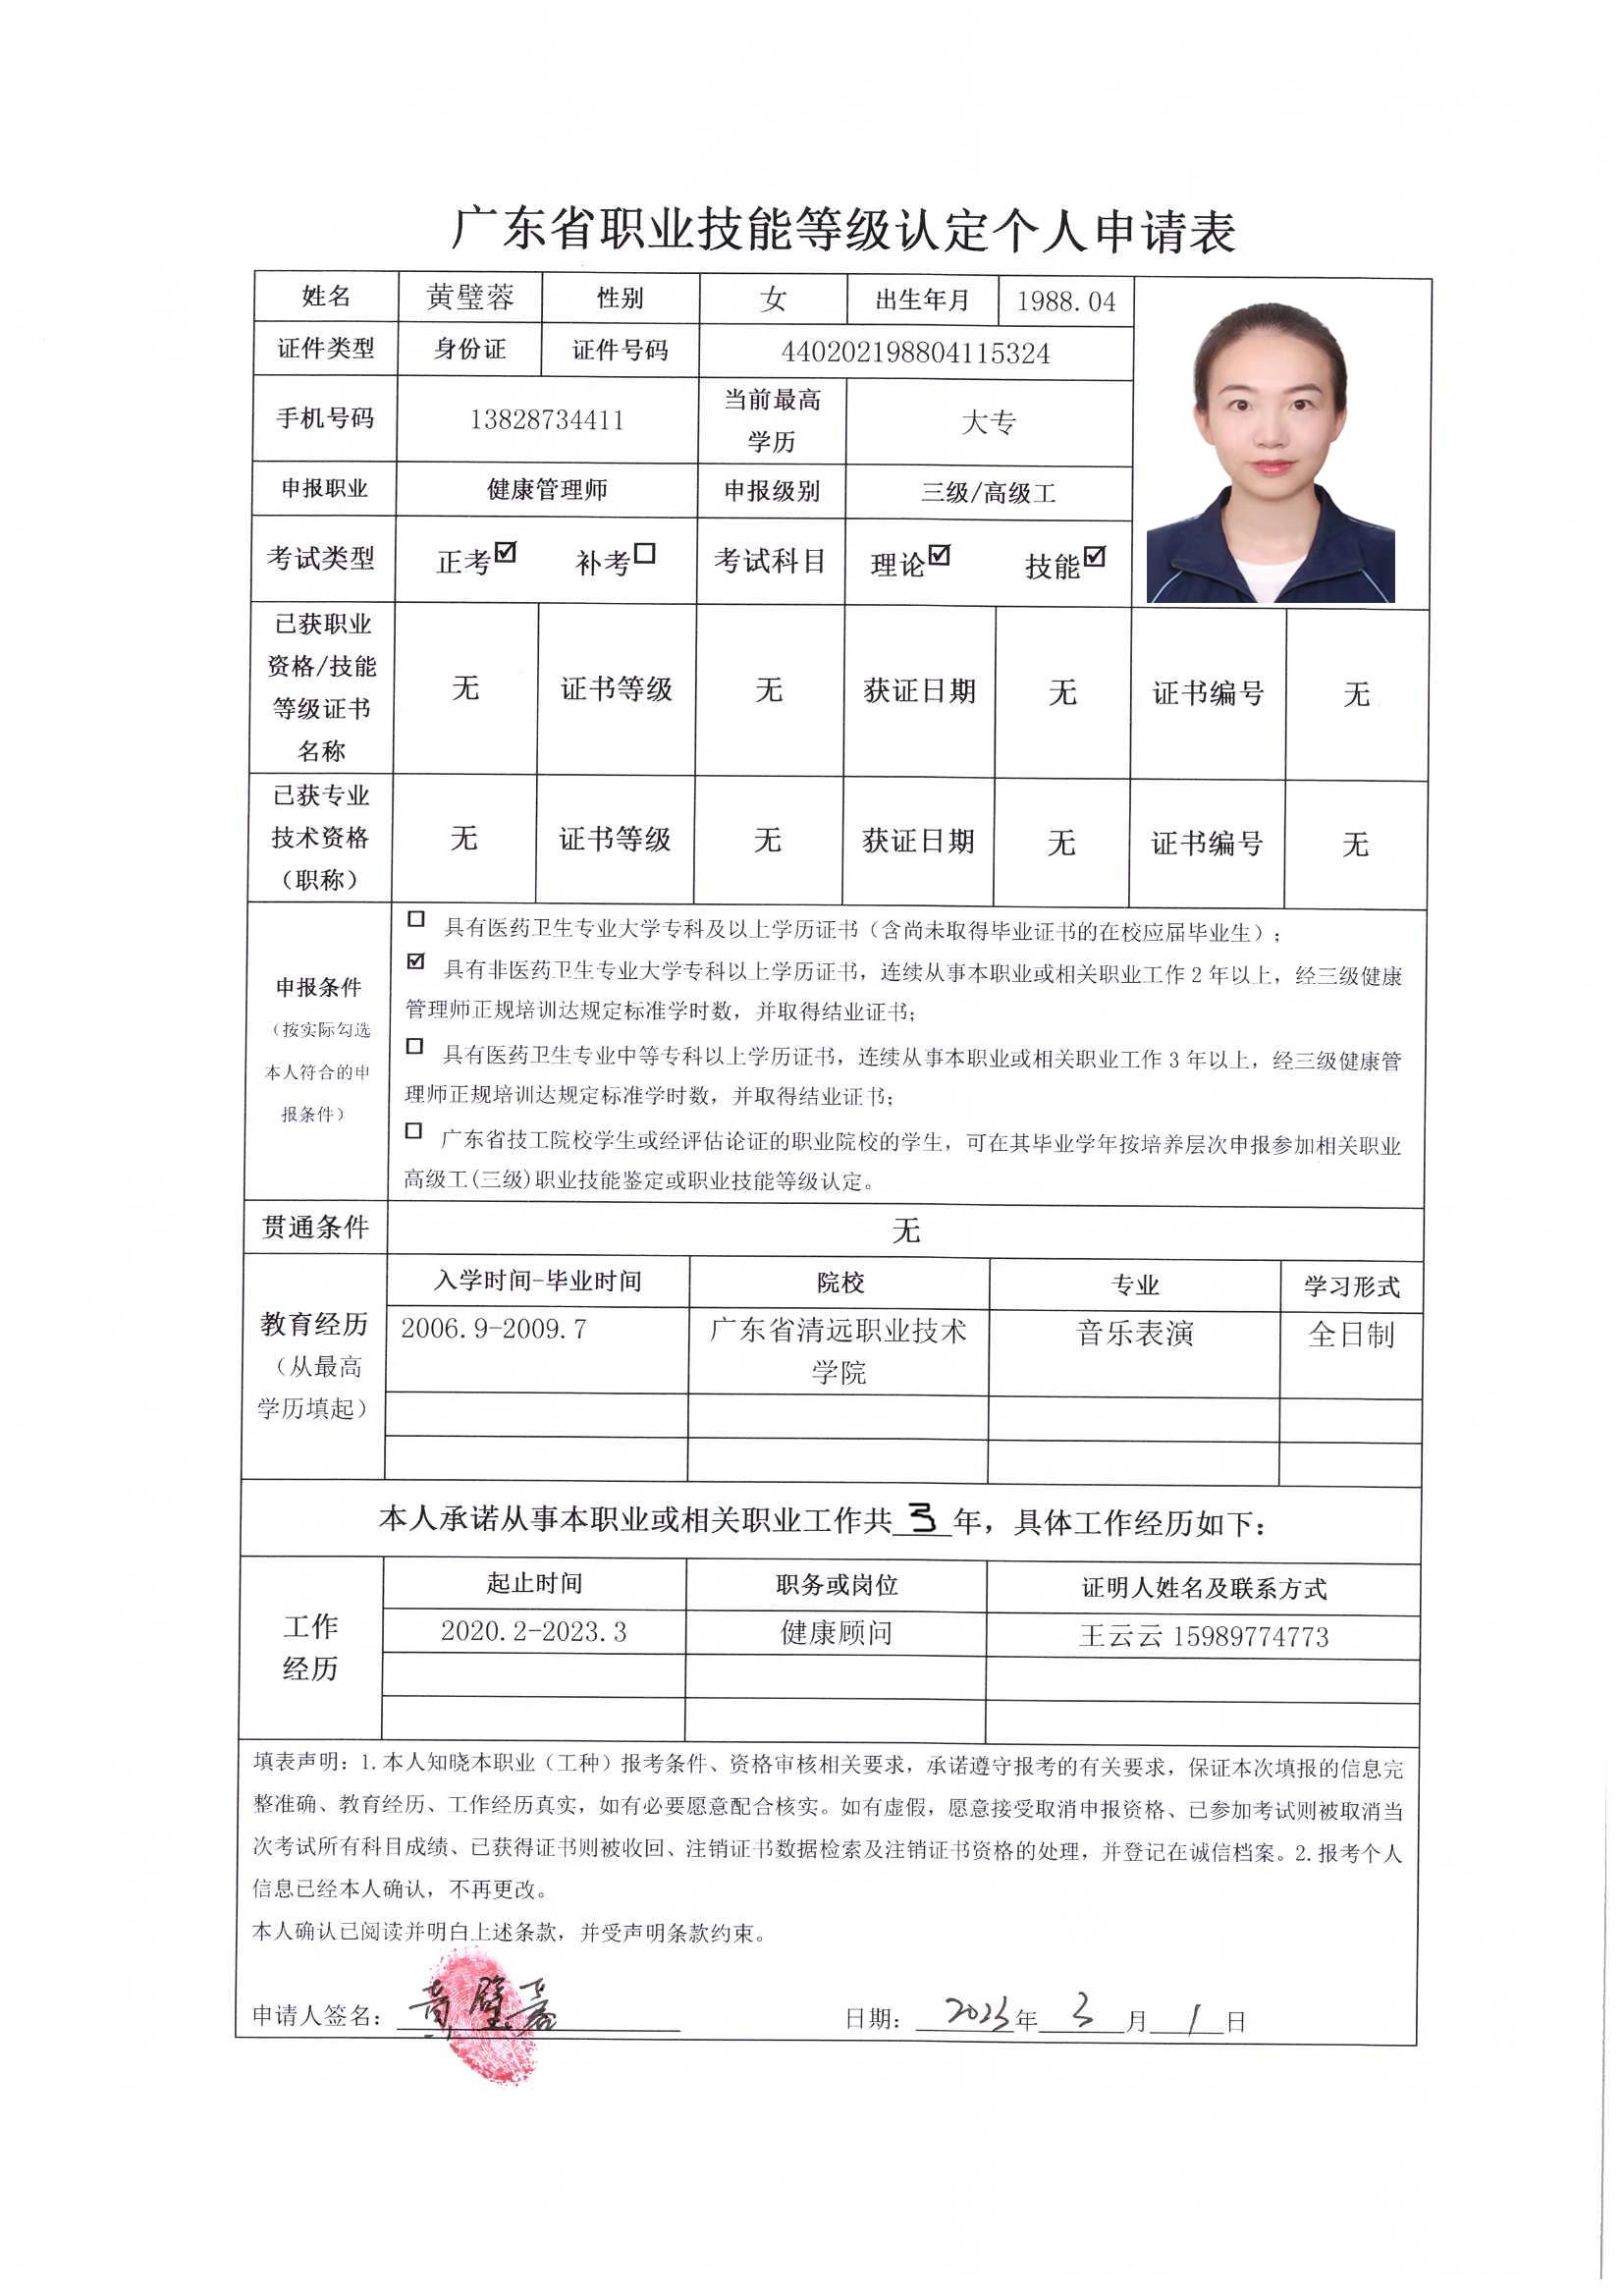 广东省职业技能等级认定个人申请表
姓名 黄璧蓉 性别 女 出生年月 1988.04
证件类型 身份证 证件号码 440202198804115324
手机号码 13828734411 当前最高学历 大专
申报职业 健康管理师 申报级别 三级/高级工
考试类型 正考☑ 补考☐ 考试科目 理论☑ 技能☑
已获职业资格/技能等级证书名称 无 证书等级 无 获证日期 无 证书编号 无
已获专业技术资格（职称） 无 证书等级 无 获证日期 无 证书编号 无
申报条件
（按实际勾选
本人符合的申
报条件）
☐ 具有医药卫生专业大学专科及以上学历证书（含尚未取得毕业证书的在校应届毕业生）；
☑ 具有非医药卫生专业大学专科以上学历证书，连续从事本职业或相关职业工作 2 年以上，经三级健康
管理师正规培训达规定标准学时数，并取得结业证书；
☐ 具有医药卫生专业中等专科以上学历证书，连续从事本职业或相关职业工作 3 年以上，经三级健康管
理师正规培训达规定标准学时数，并取得结业证书；
☐ 广东省技工院校学生或经评估论证的职业院校的学生，可在其毕业学年按培养层次申报参加相关职业
高级工(三级)职业技能鉴定或职业技能等级认定。
贯通条件 无
教育经历
（从最高
学历填起）
入学时间-毕业时间 院校 专业 学习形式
2006.9-2009.7 广东省清远职业技术学院 音乐表演 全日制
本人承诺从事本职业或相关职业工作共 3 年，具体工作经历如下：
工作
经历
起止时间 职务或岗位 证明人姓名及联系方式
2020.2-2023.3 健康顾问 王云云 15989774773
填表声明：1.本人知晓本职业（工种）报考条件、资格审核相关要求，承诺遵守报考的有关要求，保证本次填报的信息完
整准确、教育经历、工作经历真实，如有必要愿意配合核实。如有虚假，愿意接受取消申报资格、已参加考试则被取消当
次考试所有科目成绩、已获得证书则被收回、注销证书数据检索及注销证书资格的处理，并登记在诚信档案。2.报考个人
信息已经本人确认，不再更改。
本人确认已阅读并明白上述条款，并受声明条款约束。
申请人签名：黄璧蓉 日期：2023年3月1日